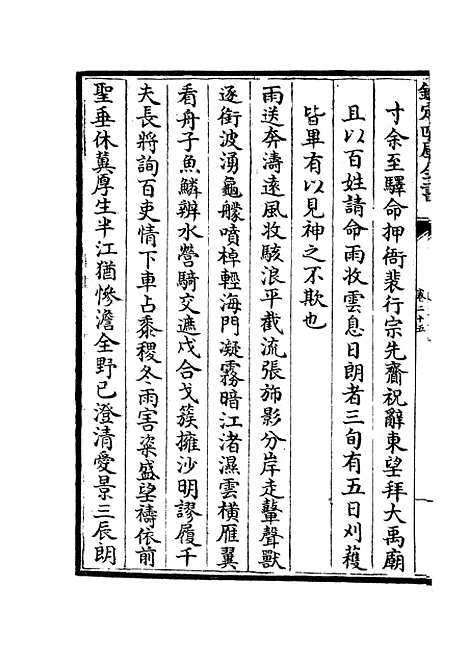 欽定四庫全書
卷二十五
寸余至驛命押衙裴行宗先齋祝辭東望拜大禹廟
且以百姓請命雨收雲息日朗者三旬有五日刈穫
皆畢有以見神之不欺也
雨送奔濤遠風收駭浪平截流張斾影分岸走鼙聲獸
逐銜波湧龜艨噴棹輕海門凝霧暗江渚濕雲橫雁翼
看舟子魚鱗辨水營騎交遮戍合戈簇擁沙明謬履千
夫長將詢百吏情下車占黍稷冬雨害粢盛望禱依前
聖垂休冀厚生半江猶慘澹全野已澄清愛景三辰朗